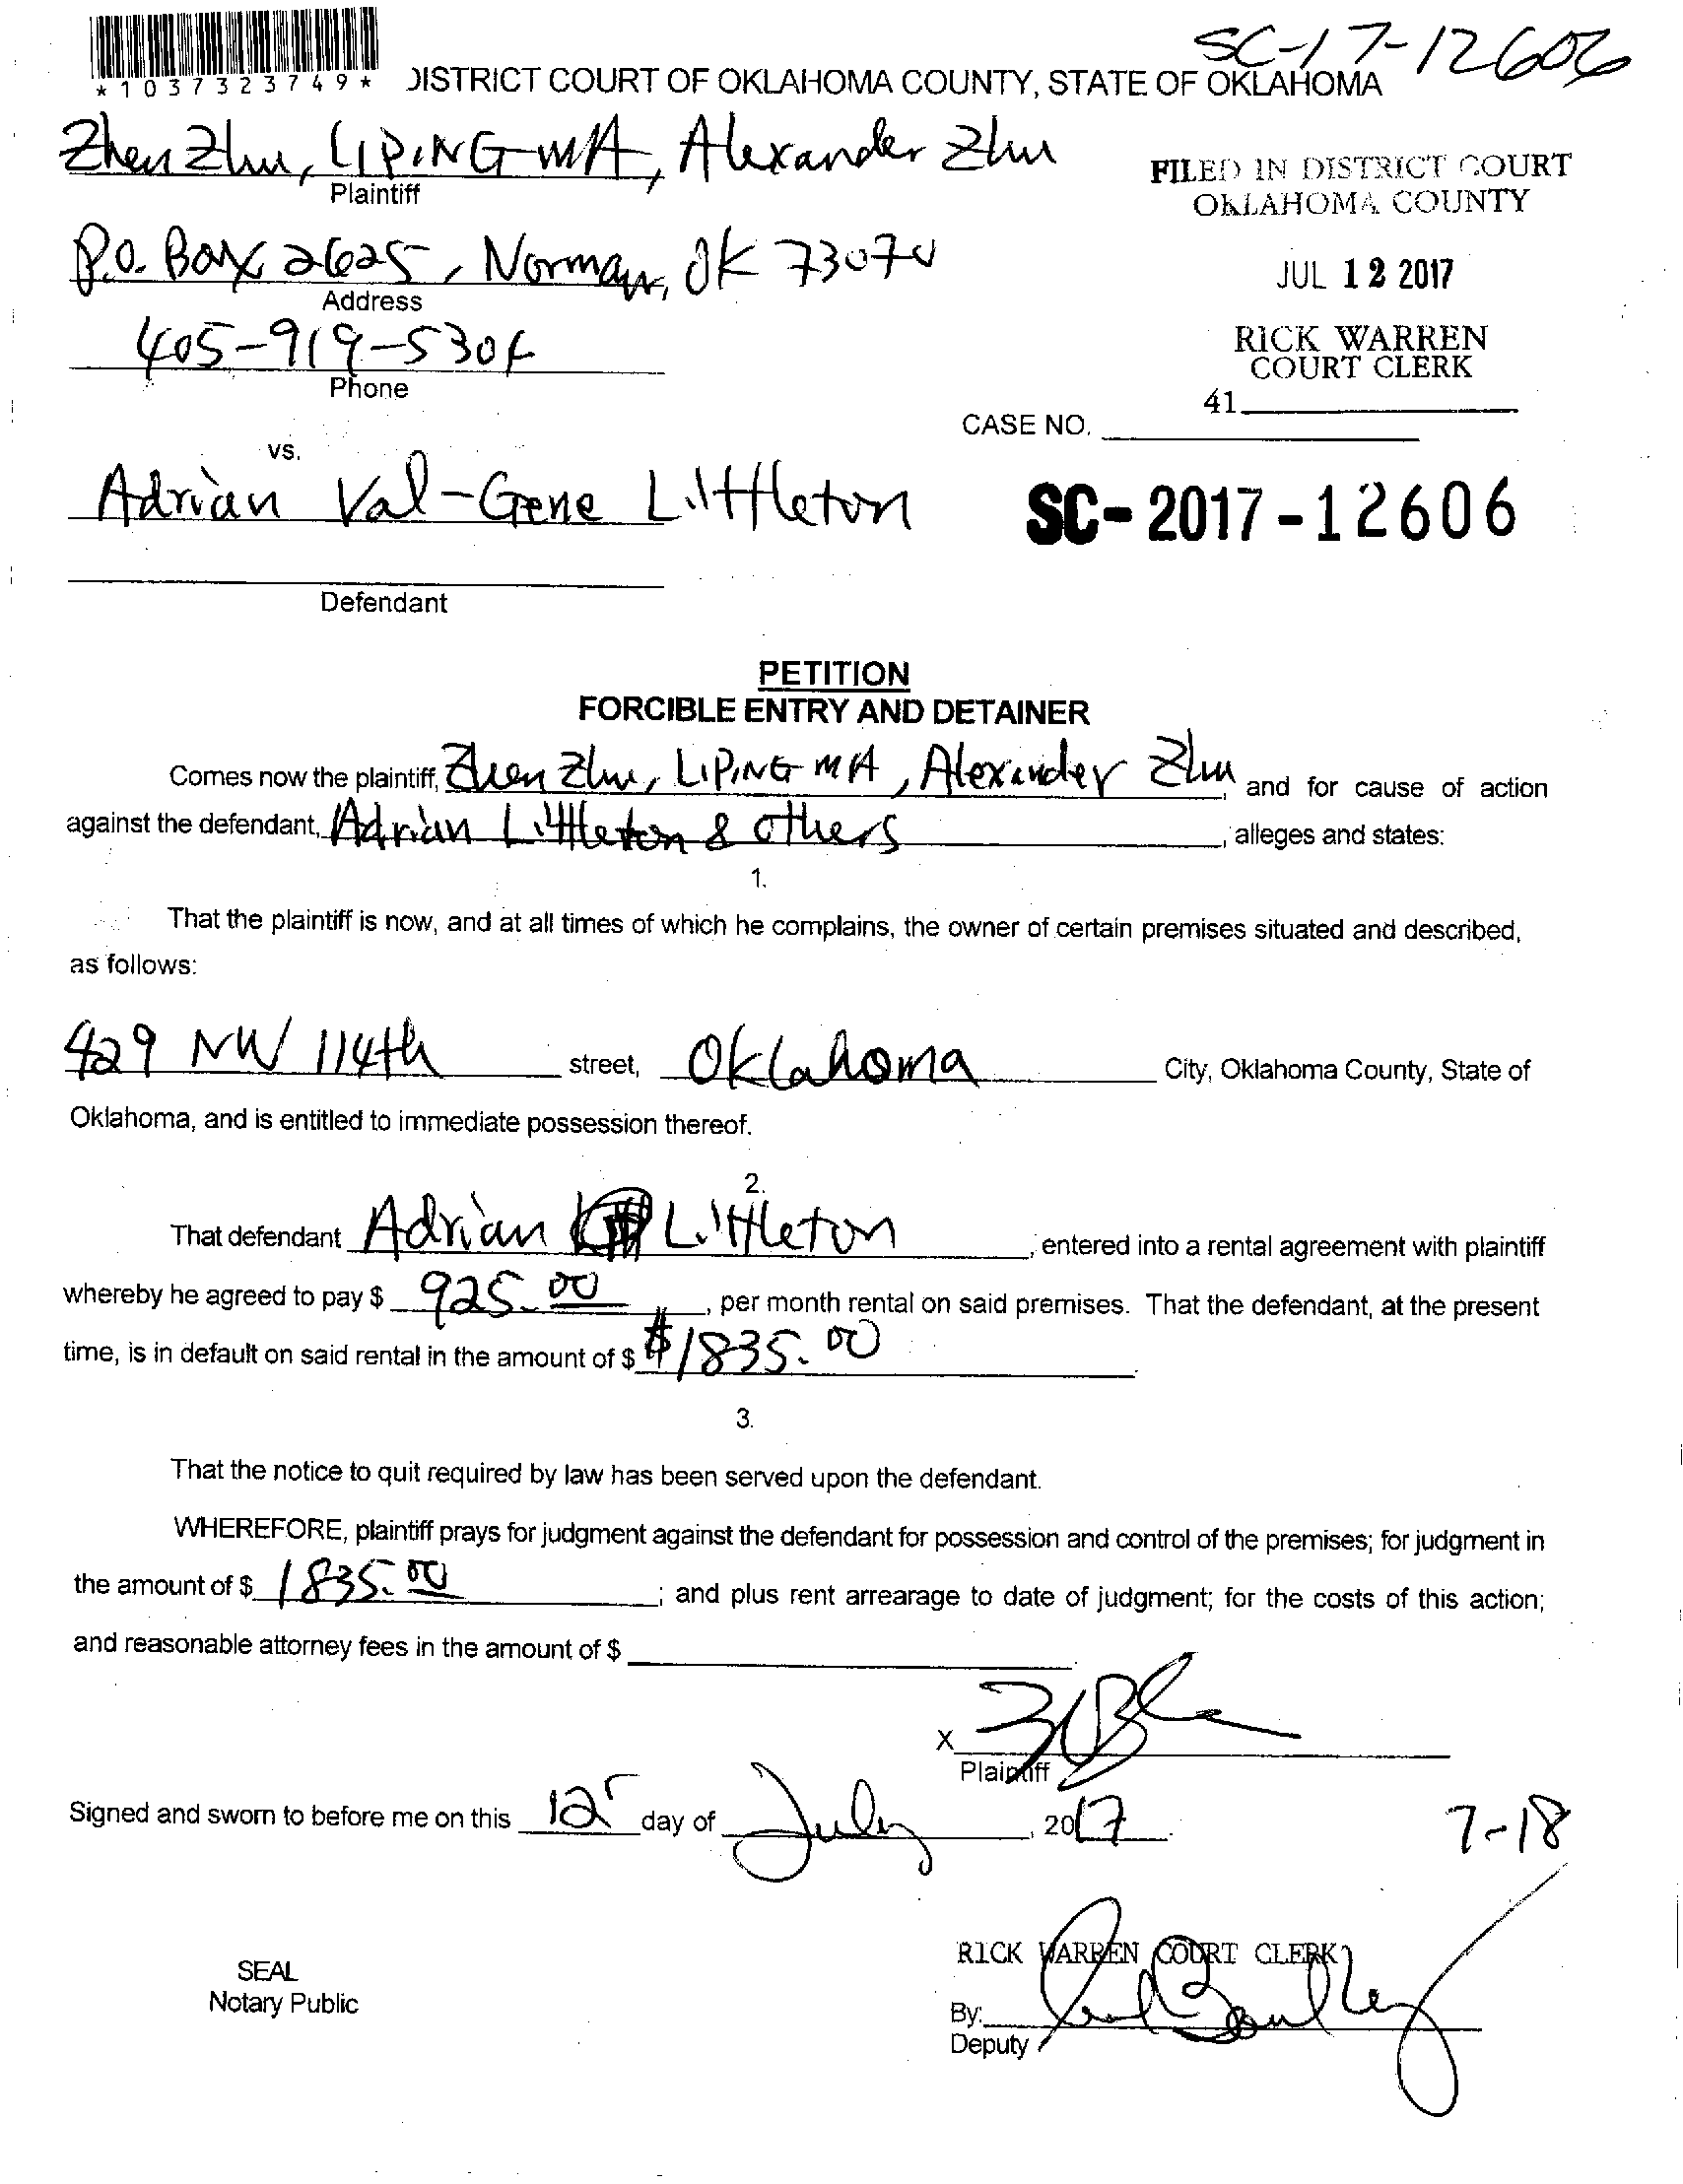 SC-17-12606
*1037323749* DISTRICT COURT OF OKLAHOMA COUNTY, STATE OF OKLAHOMA
Zhen Zhu, LIPING MA, Alexander Zhu
Plaintiff
FILED IN DISTRICT COURT
OKLAHOMA COUNTY
P.O. Box 2625, Norman, OK 73070
Address
JUL 12 2017
405-919-5304
Phone
RICK WARREN
COURT CLERK
41
CASE NO.
vs.
Adrian Val-Gene Littleton
SC-2017-12606
Defendant
PETITION
FORCIBLE ENTRY AND DETAINER
Comes now the plaintiff, Zhen Zhu, LIPING MA, Alexander Zhu, and for cause of action
against the defendant, Adrian Littleton & others, alleges and states:
1.
That the plaintiff is now, and at all times of which he complains, the owner of certain premises situated and described,
as follows:
429 NW 114th street, Oklahoma City, Oklahoma County, State of
Oklahoma, and is entitled to immediate possession thereof.
2.
That defendant Adrian Littleton, entered into a rental agreement with plaintiff
whereby he agreed to pay $ 925.00, per month rental on said premises. That the defendant, at the present
time, is in default on said rental in the amount of $ $1835.00
3.
That the notice to quit required by law has been served upon the defendant.
WHEREFORE, plaintiff prays for judgment against the defendant for possession and control of the premises; for judgment in
the amount of $ 1835.00; and plus rent arrearage to date of judgment; for the costs of this action;
and reasonable attorney fees in the amount of $
X
Plaintiff
Signed and sworn to before me on this 12 day of July, 2017.
7-18
RICK WARREN COURT CLERK
SEAL
Notary Public
By:
Deputy